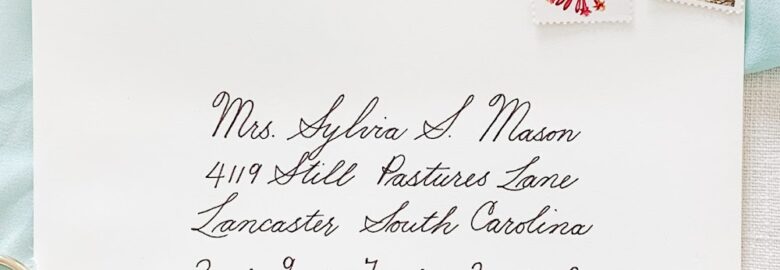 Mrs. Sylvia S. Mason
4119 Still Pastures Lane
Lancaster South Carolina